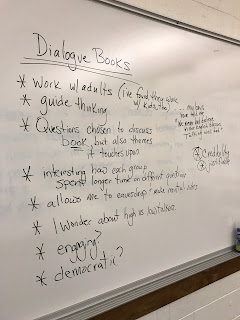 Dialogue Books
* Work w/ adults (I've found they work
w/ kids, too)
* guide thinking
* Questions chosen to discuss
book, but also themes
it touches upon.
* interesting how each group
spent longer time on different questions
* allows me to eavesdrop & make mental notes
* I wonder about high vs low talkers.
* engaging?
* democratic?
... my boys
have told me
"We never had